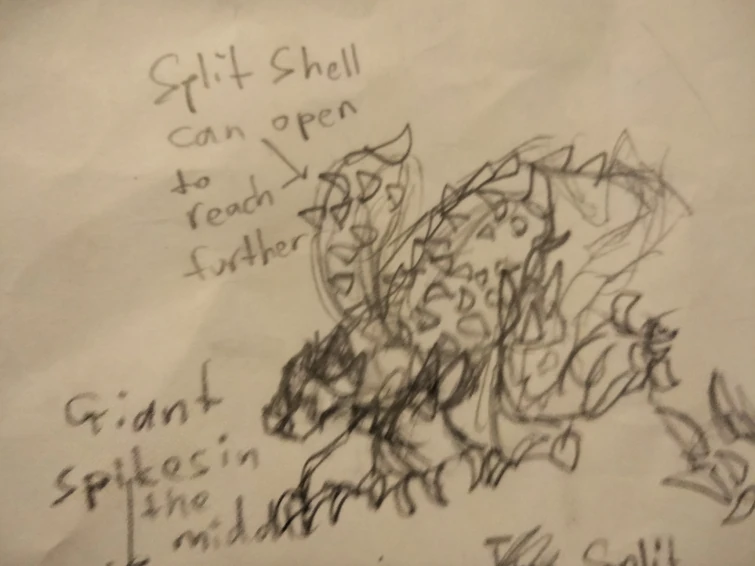 Split Shell
can open
to
reach
further
Giant
spikes in
the
middle
Split